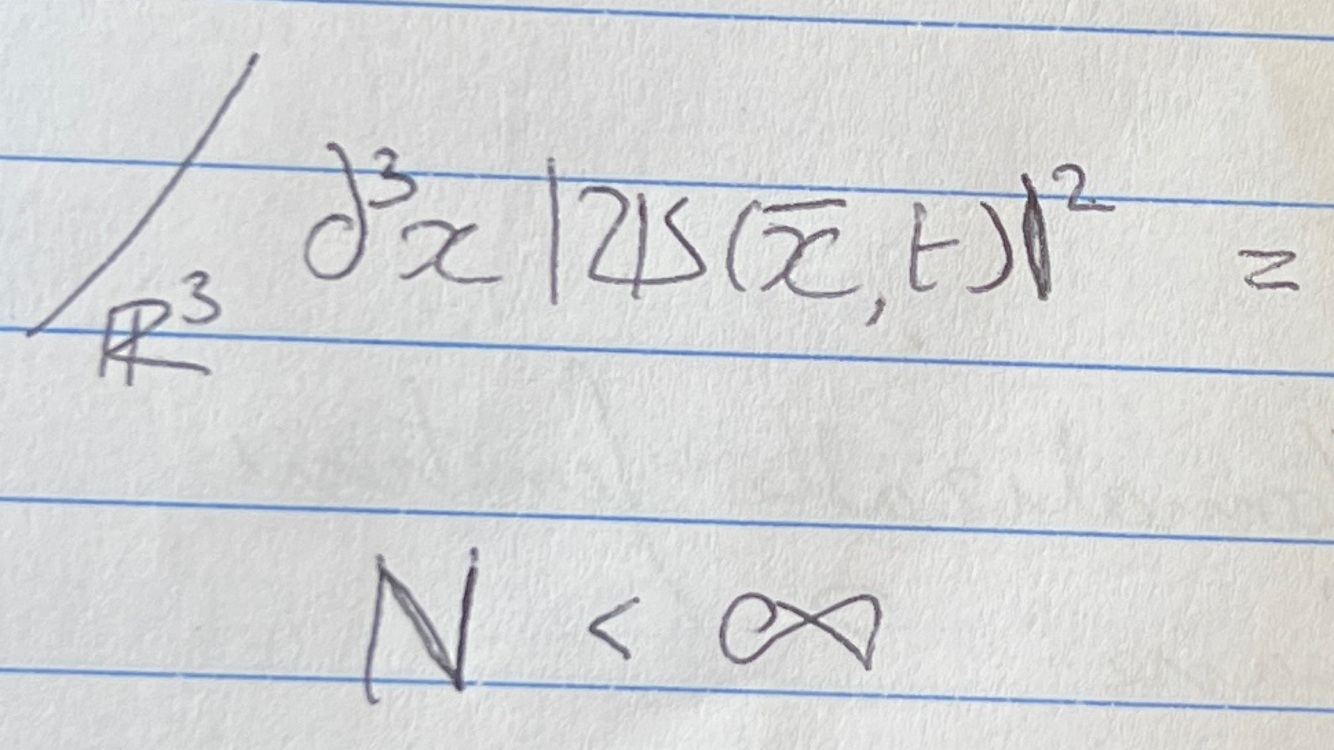 ∫_{ℝ³} d³x |ψ(x̄,t)|² =
N < ∞